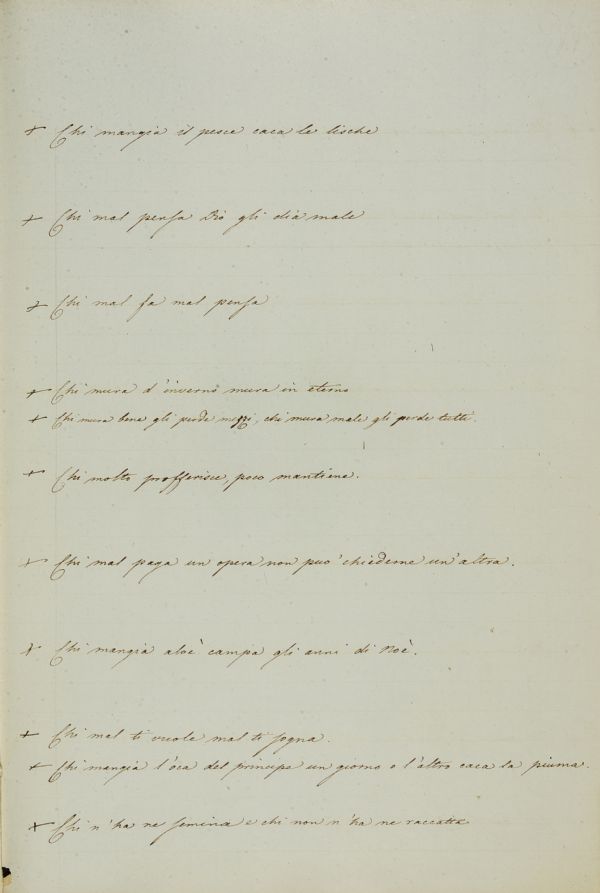 + Chi mangia il pesce caca le lische
+ Chi mal pensa Dio gli dia male
+ Chi mal fa mal pensa
+ Chi mura d'inverno mura in eterno
+ Chi mura bene gli perde mezzi, chi mura male gli perde tutti.
+ Chi molto profferisce, poco mantiene.
+ Chi mal paga un opera non può chiederne un'altra.
+ Chi mangia aloè campa gli anni di Noè.
+ Chi mal ti vuole mal ti sogna.
+ Chi mangia l'oca del principe un giorno o l'altro caca la piuma.
+ Chi n'ha ne semina e chi non n'ha ne raccatta